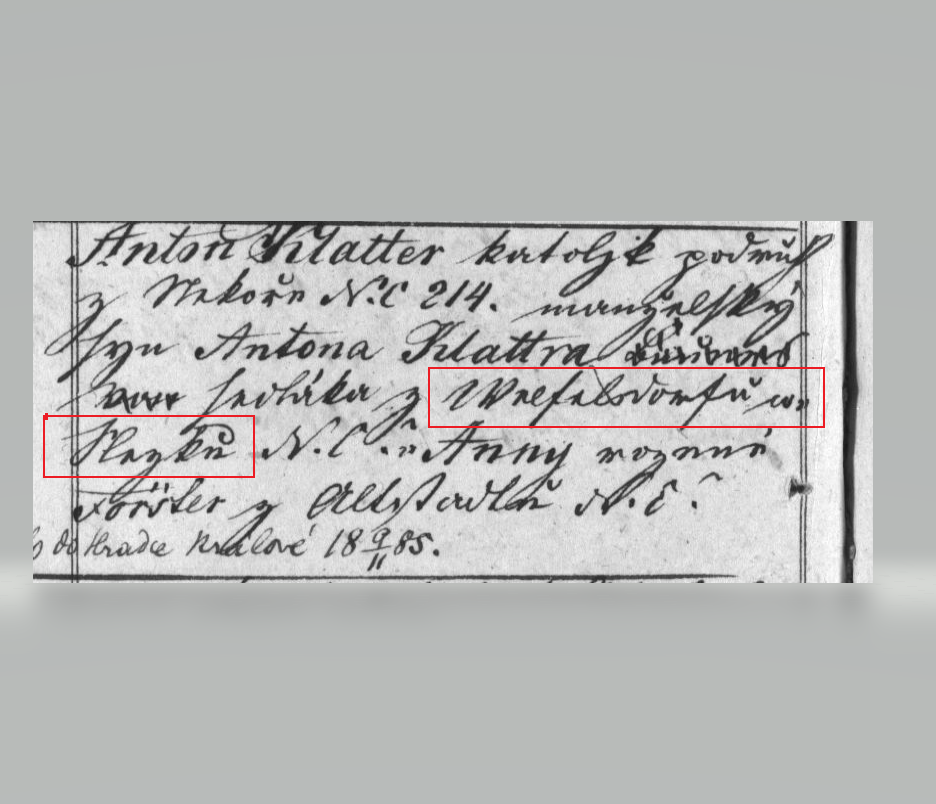 Anton Klatter katoljk podruh
z Nekoře N.C 214. manželský
syn Antona Klattra
sedláka z Welfelsdorfu w
Slezku N.C " Anny rozené
Förster z Altstadtu N.C.
do Hradce Králové 18 9/11 85.